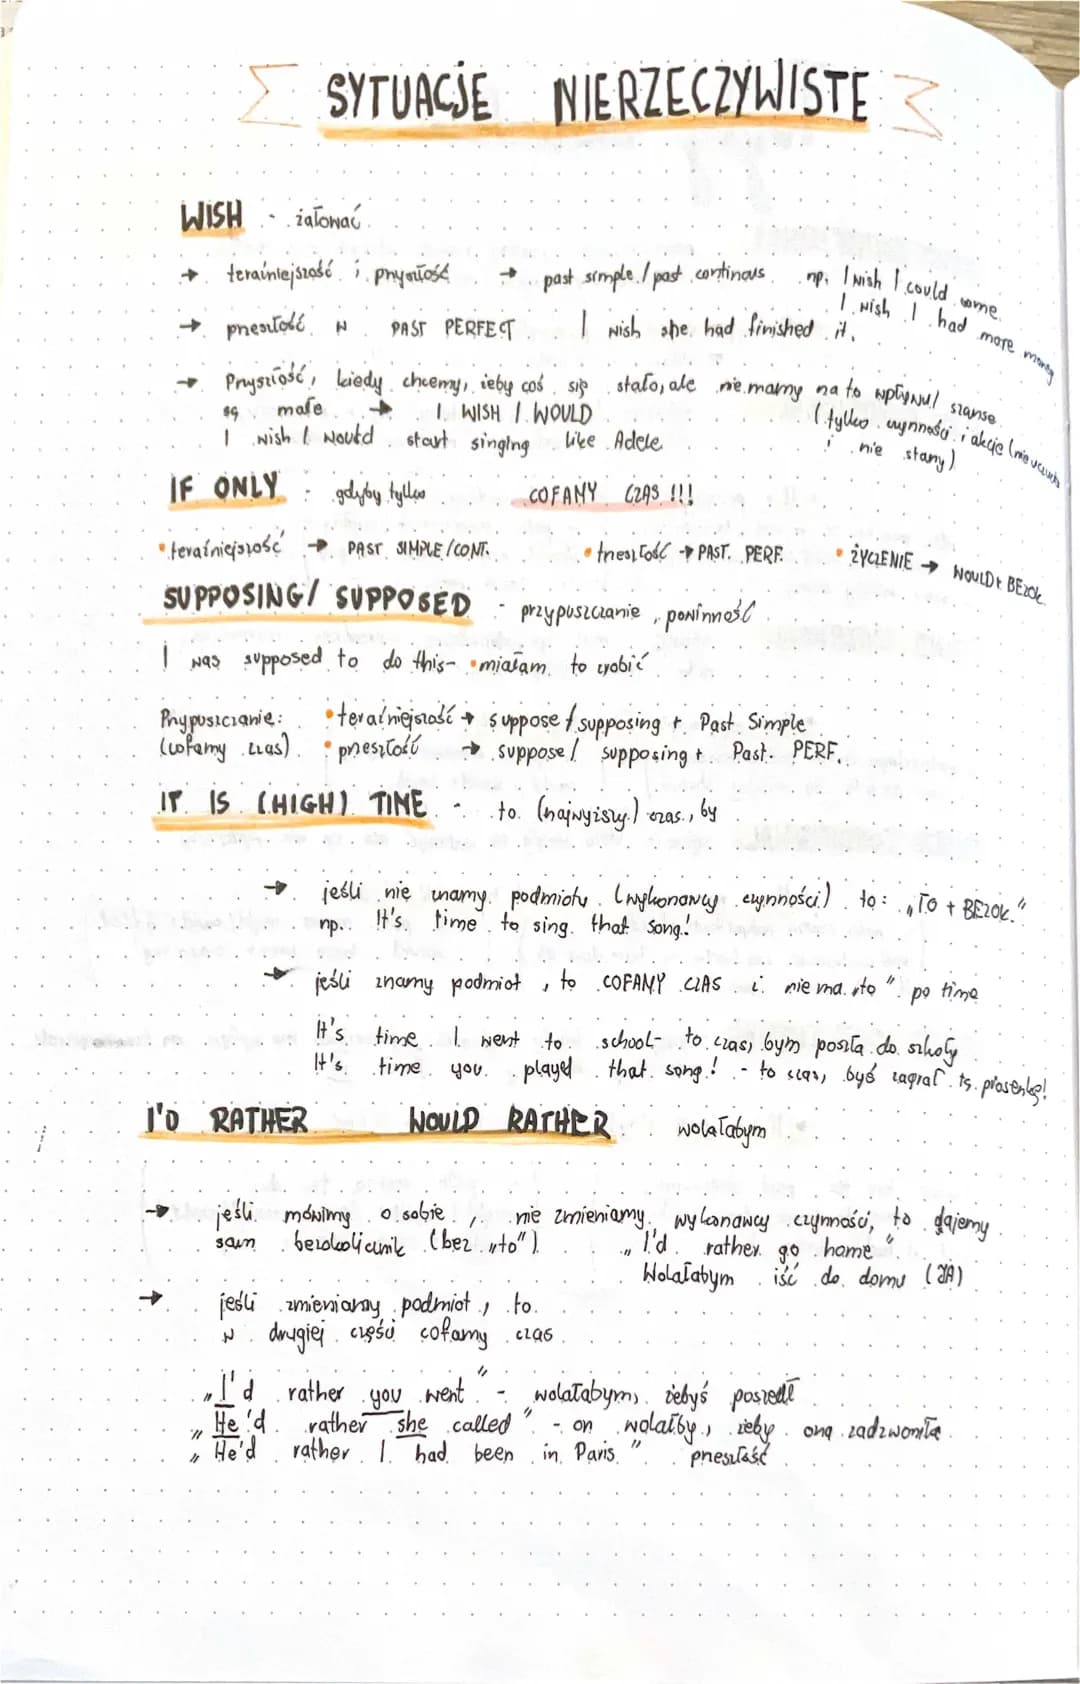 SYTUACJE NIERZECZYWISTE
WISH - żałować
→ teraźniejszość i przyszłość → past simple / past continous np. I wish I could come.
I wish I had more money
→ przeszłość W PAST PERFECT I wish she had finished it.
→ Przyszłość, kiedy chcemy, żeby coś się stało, ale nie mamy na to wpływu / szanse
są małe → I WISH I WOULD (tylko czynności i akcje (nie uczucia
I wish I would start singing like Adele i nie stany)
IF ONLY - gdyby tylko COFAMY CZAS !!!
• teraźniejszość → PAST SIMPLE/CONT. • przeszłość → PAST. PERF. • ŻYCZENIE → WOULD + BEZOK.
SUPPOSING/ SUPPOSED - przypuszczanie, powinność
I was supposed to do this - • miałam to zrobić
Przypuszczanie: • teraźniejszość → suppose / supposing + Past Simple
(cofamy czas) • przeszłość → suppose / supposing + Past. PERF.
IT IS (HIGH) TIME - to (najwyższy) czas, by
→ jeśli nie znamy podmiotu (wykonawcy czynności) to: „TO + BEZOK."
np. It's time to sing that song!
→ jeśli znamy podmiot, to COFAMY CZAS i nie ma „to" po time
It's time I went to school - to czas, bym poszła do szkoły
It's time you played that song! - to czas, byś zagrał tę piosenkę!
I'D RATHER WOULD RATHER wolałabym
→ jeśli mówimy o sobie, nie zmieniamy wykonawcy czynności, to dajemy
sam bezokolicznik (bez „to") „I'd rather go home"
Wolałabym iść do domu (JA)
→ jeśli zmieniamy podmiot, to
w drugiej części cofamy czas
„I'd rather you went" - wolałabym, żebyś poszedł
„He'd rather she called" - on wolałby, żeby ona zadzwoniła
„He'd rather I had been in Paris." przeszłość